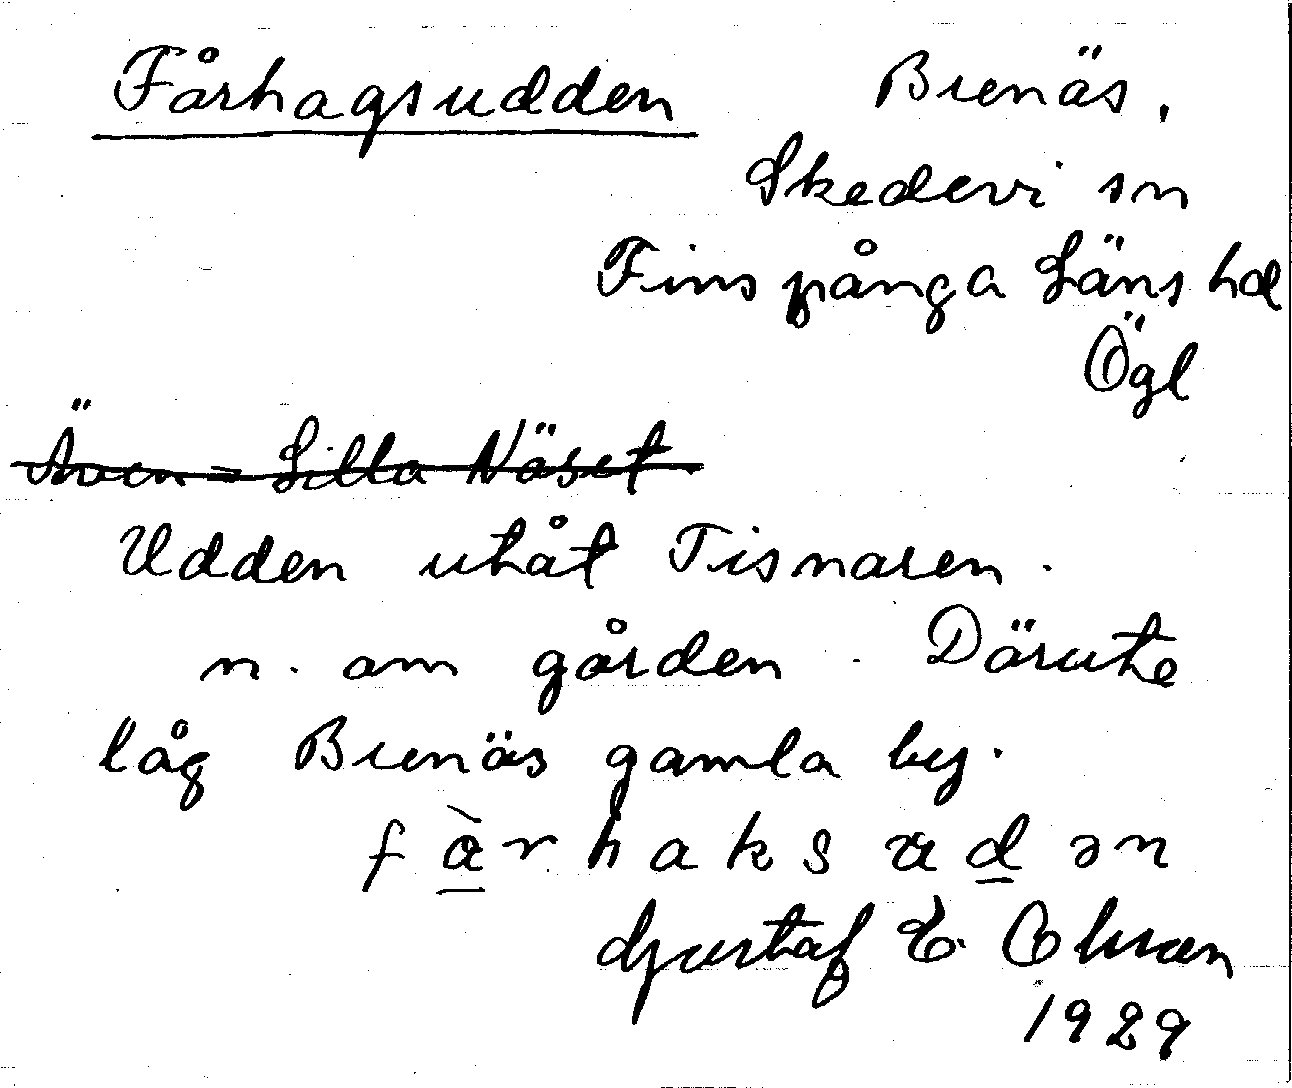 Fårhagsudden Brenäs,
Skedevi sn
Finspånga Läns hd
Ögl
~~Även = Lilla Näset~~
Udden utåt Tisnaren.
n. om gården. Därute
låg Brenäs gamla by.
f à̱ r h a k s a d̲ ə n
Gustaf E.
1929